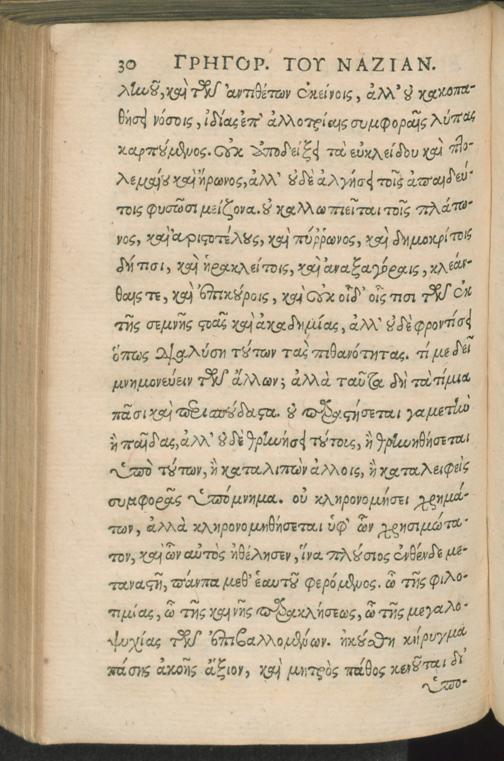 30 ΓΡΗΓΟΡ. ΤΟΥ ΝΑΖΙΑΝ.
λἱμοῦ, καὶ τῶν ἀντιθέτων ἐκείνοις, ἀλλ' οὐ κακοπα-
θήσει νόσοις, ἰδίας ἐπ' ἀλλοτρίαις συμφοραῖς λύπας
καρπούμενος. οὐκ ὑποδείξει τὰ εὐκλείδου καὶ πτο-
λεμαίου καὶ ἥρωνος, ἀλλ' οὐδὲ ἀλγήσει τοῖς ἀπαιδεύ-
τοις φυσῶσι μείζονα. οὐ καλλωπιεῖται τοῖς πλάτω-
νος, καὶ ἀριστοτέλους, καὶ πύῤῥωνος, καὶ δημοκρίτοις
δή τισι, καὶ ἡρακλείτοις, καὶ ἀναξαγόραις, κλεάν-
θαις τε, καὶ ἐπικούροις, καὶ οὐκ οἶδ' οἷς τισι τῶν ἐκ
τῆς σεμνῆς στοᾶς καὶ ἀκαδημίας, ἀλλ' οὐδὲ φροντίσει
ὅπως διαλύσῃ τούτων τὰς πιθανότητας. τί με δεῖ
μνημονεύειν τῶν ἄλλων; ἀλλὰ ταῦτα δὴ τὰ τίμια
πᾶσι καὶ περισπούδαστα. οὐ παραστήσεται γαμετὴν
ἢ παῖδας, ἀλλ' οὐδὲ θρηνήσει τούτοις, ἢ θρηνηθήσεται
ὑπὸ τούτων, ἢ καταλιπὼν ἄλλοις, ἢ καταλειφθεὶς
συμφορᾶς ὑπόμνημα. οὐ κληρονομήσει χρημά-
των, ἀλλὰ κληρονομηθήσεται ὑφ' ὧν χρησιμώτα-
τον, καὶ ὧν αὐτὸς ἠθέλησεν, ἵνα πλούσιος ἐνθένδε με-
ταναστῇ, πάντα μεθ' ἑαυτοῦ φερόμενος. ὢ τῆς φιλο-
τιμίας, ὢ τῆς καινῆς παρακλήσεως, ὢ τῆς μεγαλο-
ψυχίας τῶν ἐπιβαλλομένων. ἠκούσθη κήρυγμα
πάσης ἀκοῆς ἄξιον, καὶ μητρὸς πάθος κενοῦται δι'
ὑπο-